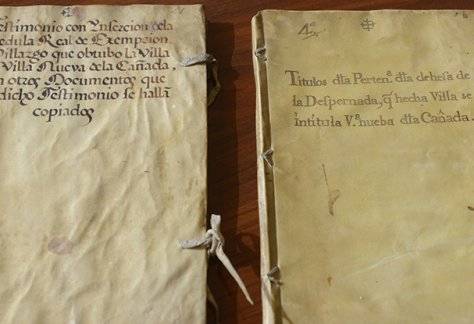 estimonio con Ynsercion dela
edula Real de Exempcion
Villazgo que obtubo la Villa
Villa Nueva dela Cañada,
n otros Documentos que
dicho Testimonio se hallã
copiados
4º
Titulos dla Pertenª dla dehesa de
la Despernada, q̃ hecha Villa se
intitula Vª nueba dla Cañada.